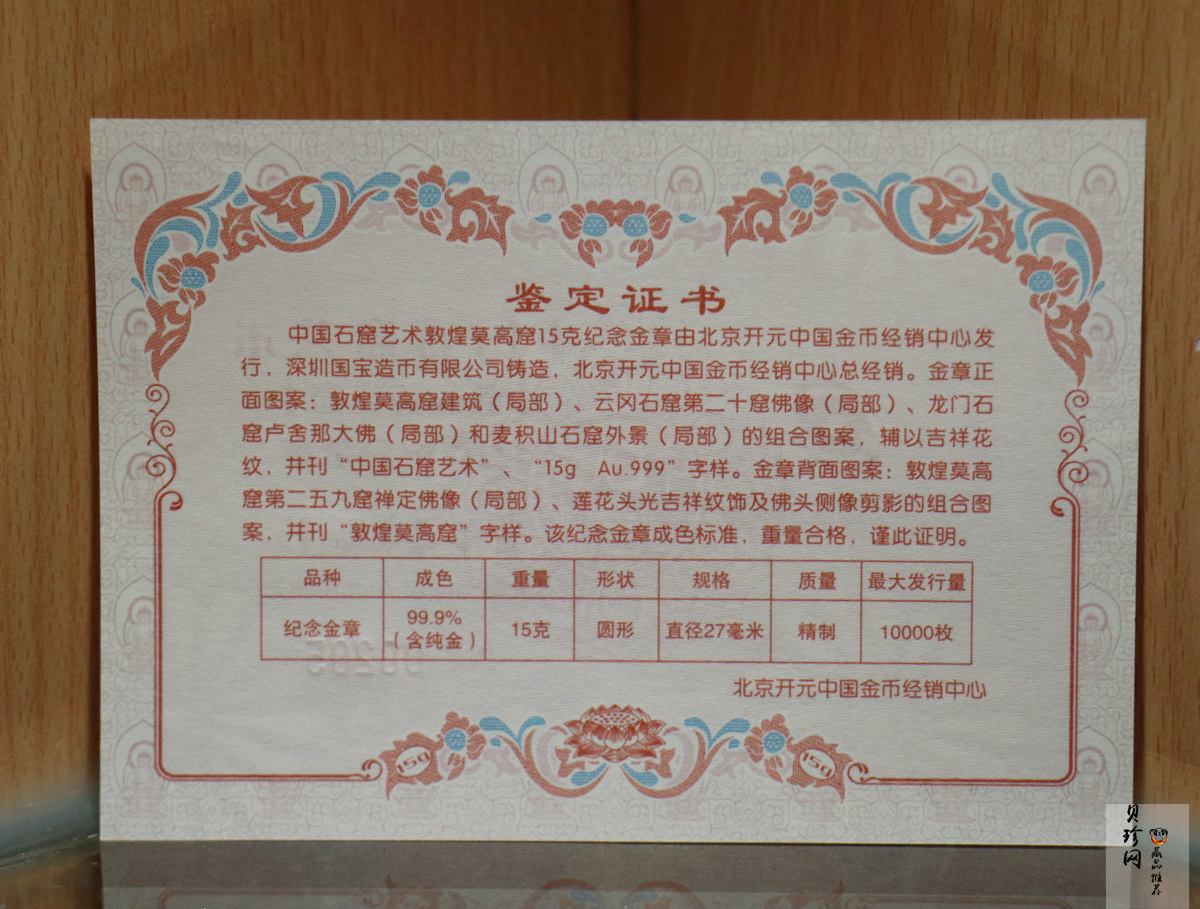 鉴定证书
中国石窟艺术敦煌莫高窟15克纪念金章由北京开元中国金币经销中心发
行，深圳国宝造币有限公司铸造，北京开元中国金币经销中心总经销。金章正
面图案：敦煌莫高窟建筑（局部）、云冈石窟第二十窟佛像（局部）、龙门石
窟卢舍那大佛（局部）和麦积山石窟外景（局部）的组合图案，辅以吉祥花
纹，并刊“中国石窟艺术”、“15g Au.999”字样。金章背面图案：敦煌莫高
窟第二五九窟禅定佛像（局部）、莲花头光吉祥纹饰及佛头侧像剪影的组合图
案，并刊“敦煌莫高窟”字样。该纪念金章成色标准，重量合格，谨此证明。
品种 成色 重量 形状 规格 质量 最大发行量
纪念金章 99.9%（含纯金） 15克 圆形 直径27毫米 精制 10000枚
北京开元中国金币经销中心
15g 15g
贝珍网 藏品推荐